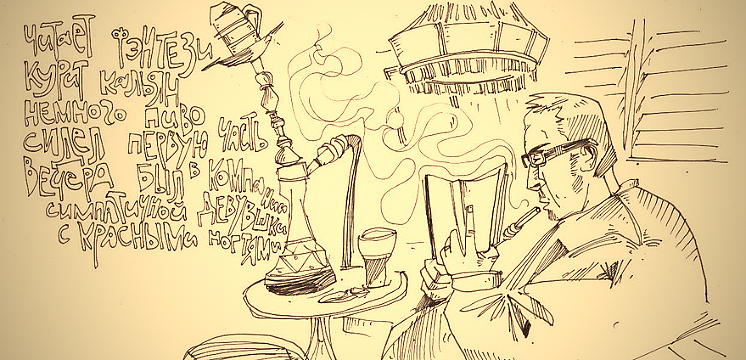 читает фэнтези
курит кальян
немного пиво
сидел первую часть
вечера был в компании
симпатичной девушки
с красными ногтями